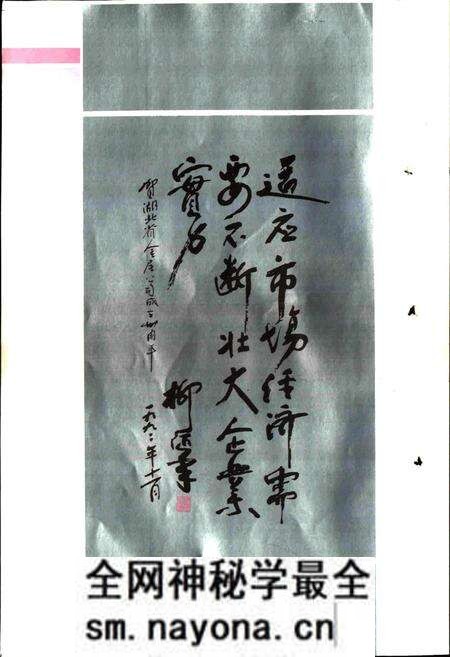 适应市場经济需
要不断壮大企業
實力
賀湖北省金属公司成立卅周年
柳
一九九二年十一月
全网神秘学最全
sm.nayona.cn